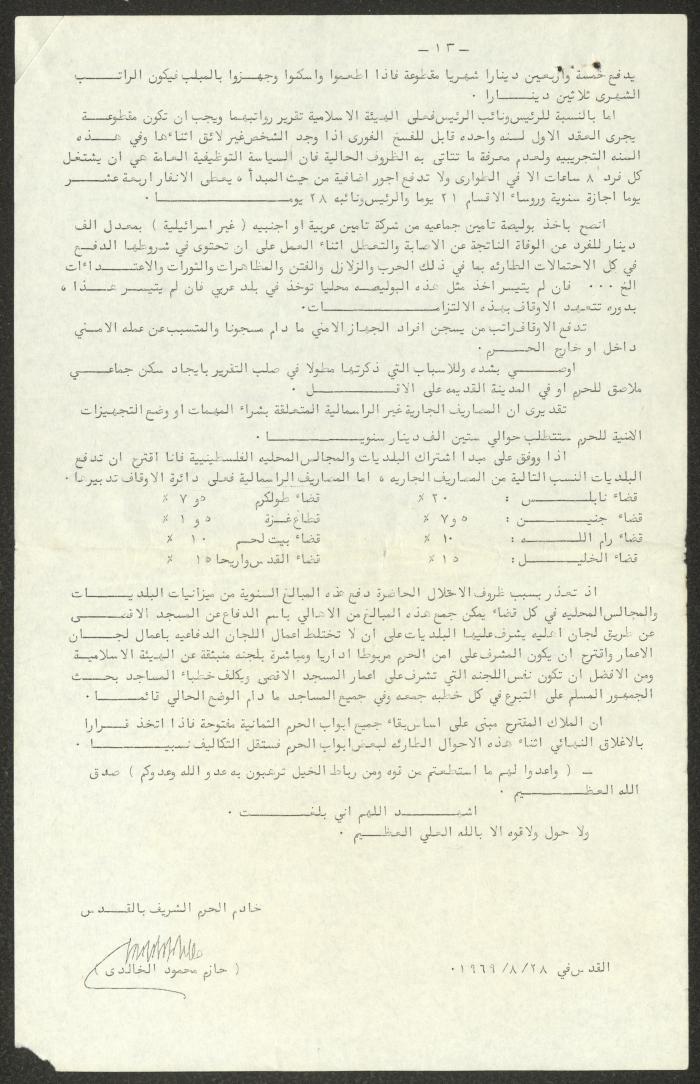 — ١٣ —
يدفع خمسة واربعين دينارا شهريا مقطوعة فاذا اطعموا واسكنوا وجهزوا بالمبلب فيكون الراتب
الشهرى ثلاثين دينارا .
اما بالنسبة للرئيس ونائب الرئيس فعلى الهيئة الاسلامية تقرير رواتبهما ويجب ان تكون مقطوعة
يجرى العقد الاول لسنه واحده قابل للفسخ الفورى اذا وجد الشخص غير لائق اثناءها وفي هذه
السنه التجريبيه ولعدم معرفة ما تتاتى به الظروف الحالية فان السياسة التوظيفية العامة هي ان يشتغل
كل فرد ٨ ساعات الا في الطوارى ولا تدفع اجور اضافية من حيث المبدأ ه يعطى الانفار اربعة عشر
يوما اجازة سنوية وروساء الاقسام ٢١ يوما والرئيس ونائبه ٢٨ يوما .
انصح باخذ بوليصة تامين جماعيه من شركة تامين عربية او اجنبيه ( غير اسرائيلية ) بمعدل الف
دينار للفرد عن الوفاة الناتجة عن الاصابة والتعطل اثناء العمل على ان تحتوى في شروطها الدفع
في كل الاحتمالات الطارئه بما في ذلك الحرب والزلازل والفتن والمظاهرات والثورات والاعتداءات
الخ ٠٠٠ فان لم يتيسر اخذ مثل هذه البوليصه محليا توخذ في بلد عربي فان لم يتيسر هذا ه
بدوره تتعهد الاوقاف بهذه الالتزامات .
تدفع الاوقاف راتب من يسجن افراد الجهاز الامني ما دام مسجونا والمتسبب عن عمله الامني
داخل او خارج الحرم .
اوصي بشده وللاسباب التي ذكرتها مطولا في صلب التقرير بايجاد سكن جماعي
ملاصق للحرم او في المدينة القديمه على الاقل .
تقديرى ان المصاريف الجارية غير الراسمالية المتعلقة بشراء المهمات او وضع التجهيزات
الامنية للحرم ستتطلب حوالي ستين الف دينار سنويا .
اذا ووفق على مبدا اشتراك البلديات والمجالس المحليه الفلسطينيية فانا اقترح ان تدفع
البلديات النسب التالية من المصاريف الجاريه ه اما المصاريف الراسمالية فعلى دائرة الاوقاف تدبيرها .
قضاء نابلس : ٢٠ ٪ قضاء طولكرم ٥و٧ ٪
قضاء جنين : ٥و٧ ٪ قطاع غزة ٥و١ ٪
قضاء رام الله : ١٠ ٪ قضاء بيت لحم ١٠ ٪
قضاء الخليل : ١٥ ٪ قضاء القدس واريحا ١٥ ٪
اذ تعذر بسبب ظروف الاحتلال الحاضرة دفع هذه المبالغ السنوية من ميزانيات البلديات
والمجالس المحليه في كل قضاء يمكن جمع هذه المبالغ من الاهالي باسم الدفاع عن المسجد الاقصى
عن طريق لجان اهليه يشرف عليها البلديات على ان لا تختلط اعمال اللجان الدفاعيه باعمال لجان
الاعمار واقترح ان يكون المشرف على امن الحرم مربوطا اداريا ومباشرة بلجنه منبثقة عن الهيئة الاسلامية
ومن الافضل ان تكون نفس اللجنه التي تشرف على اعمار المسجد الاقصى ويكلف خطباء المساجد بحث
الجمهور المسلم على التبرع في كل خطبه جمعه وفي جميع المساجد ما دام الوضع الحالي قائما .
ان الملاك المقترح مبنى على اساس بقاء جميع ابواب الحرم الثمانية مفتوحة فاذا اتخذ قرارا
بالاغلاق النهائي اثناء هذه الاحوال الطارئه لبعض ابواب الحرم فستقل التكاليف نسبيا .
— ( واعدوا لهم ما استطعتم من قوه ومن رباط الخيل ترهبون به عدو الله وعدوكم ) صدق
الله العظيم .
اشهد اللهم اني بلغت .
ولا حول ولا قوه الا بالله العلي العظيم .
خادم الحرم الشريف بالقدس
( حازم محمود الخالدى )
القدس في ٢٨/ ٨/ ١٩٦٩٠